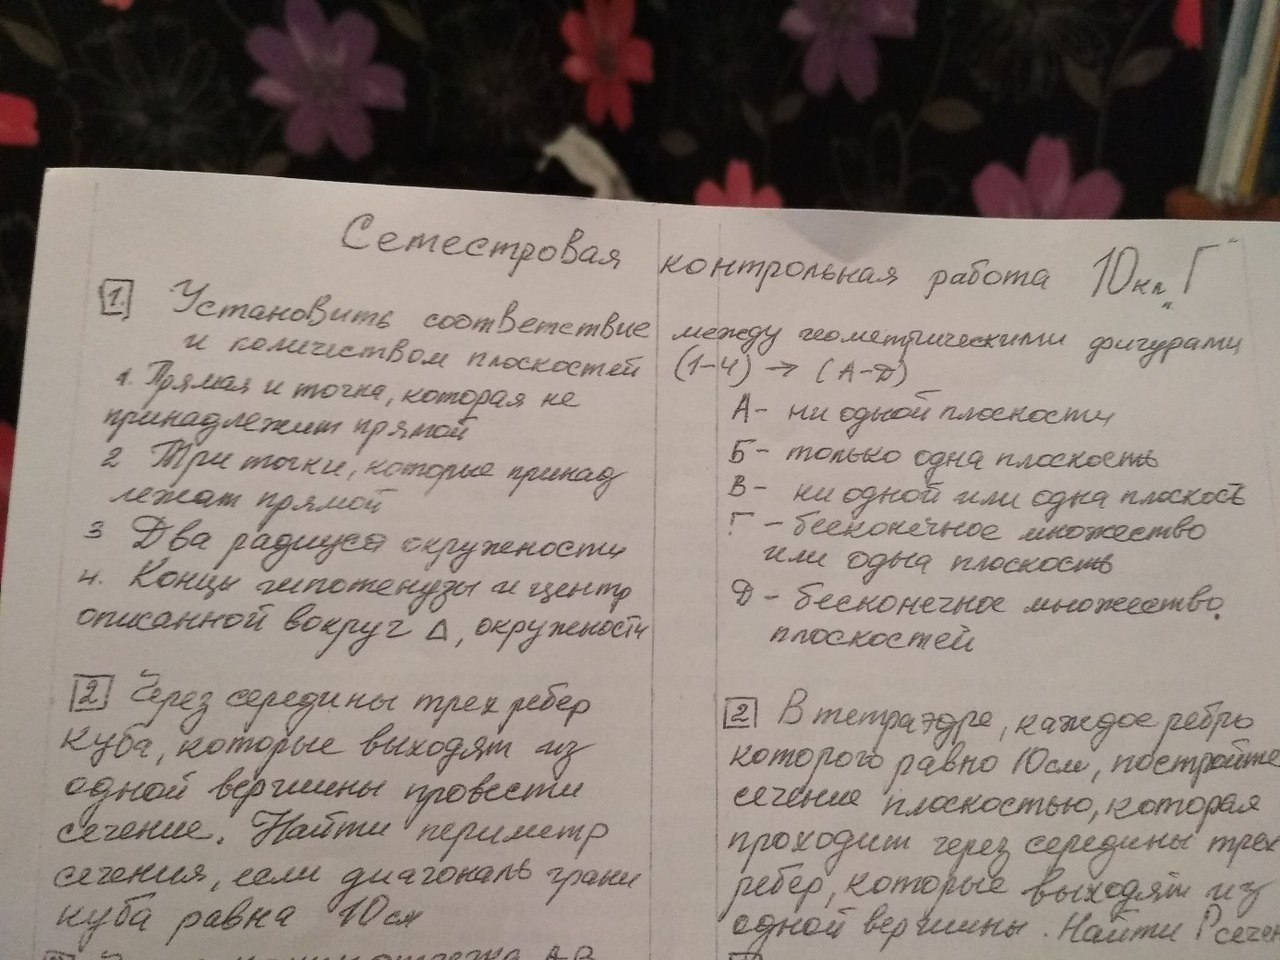 Семестровая контрольная работа 10 кл. "Г"
1. Установить соответствие между геометрическими фигурами
и количеством плоскостей (1-4) → (А-Д)
1. Прямая и точка, которая не
принадлежит прямой
2 Три точки, которые принад
лежат прямой
3 Два радиуса окружености
4. Концы гипотенузы и центр
описанной вокруг Δ, окружености
А- ни одной плоскости
Б- только одна плоскость
В- ни одной или одна плоскость
Г- бесконечное множество
или одна плоскость
Д- бесконечное множество
плоскостей
2 Через середины трех ребер
куба, которые выходят из
одной вершины провести
сечение. Найти периметр
сечения, если диагональ грани
куба равна 10см
2 В тетраэдре, каждое ребро
которого равно 10см, постройте
сечение плоскостью, которая
проходит через середины трех
ребер, которые выходят из
одной вершины. Найти P сечен